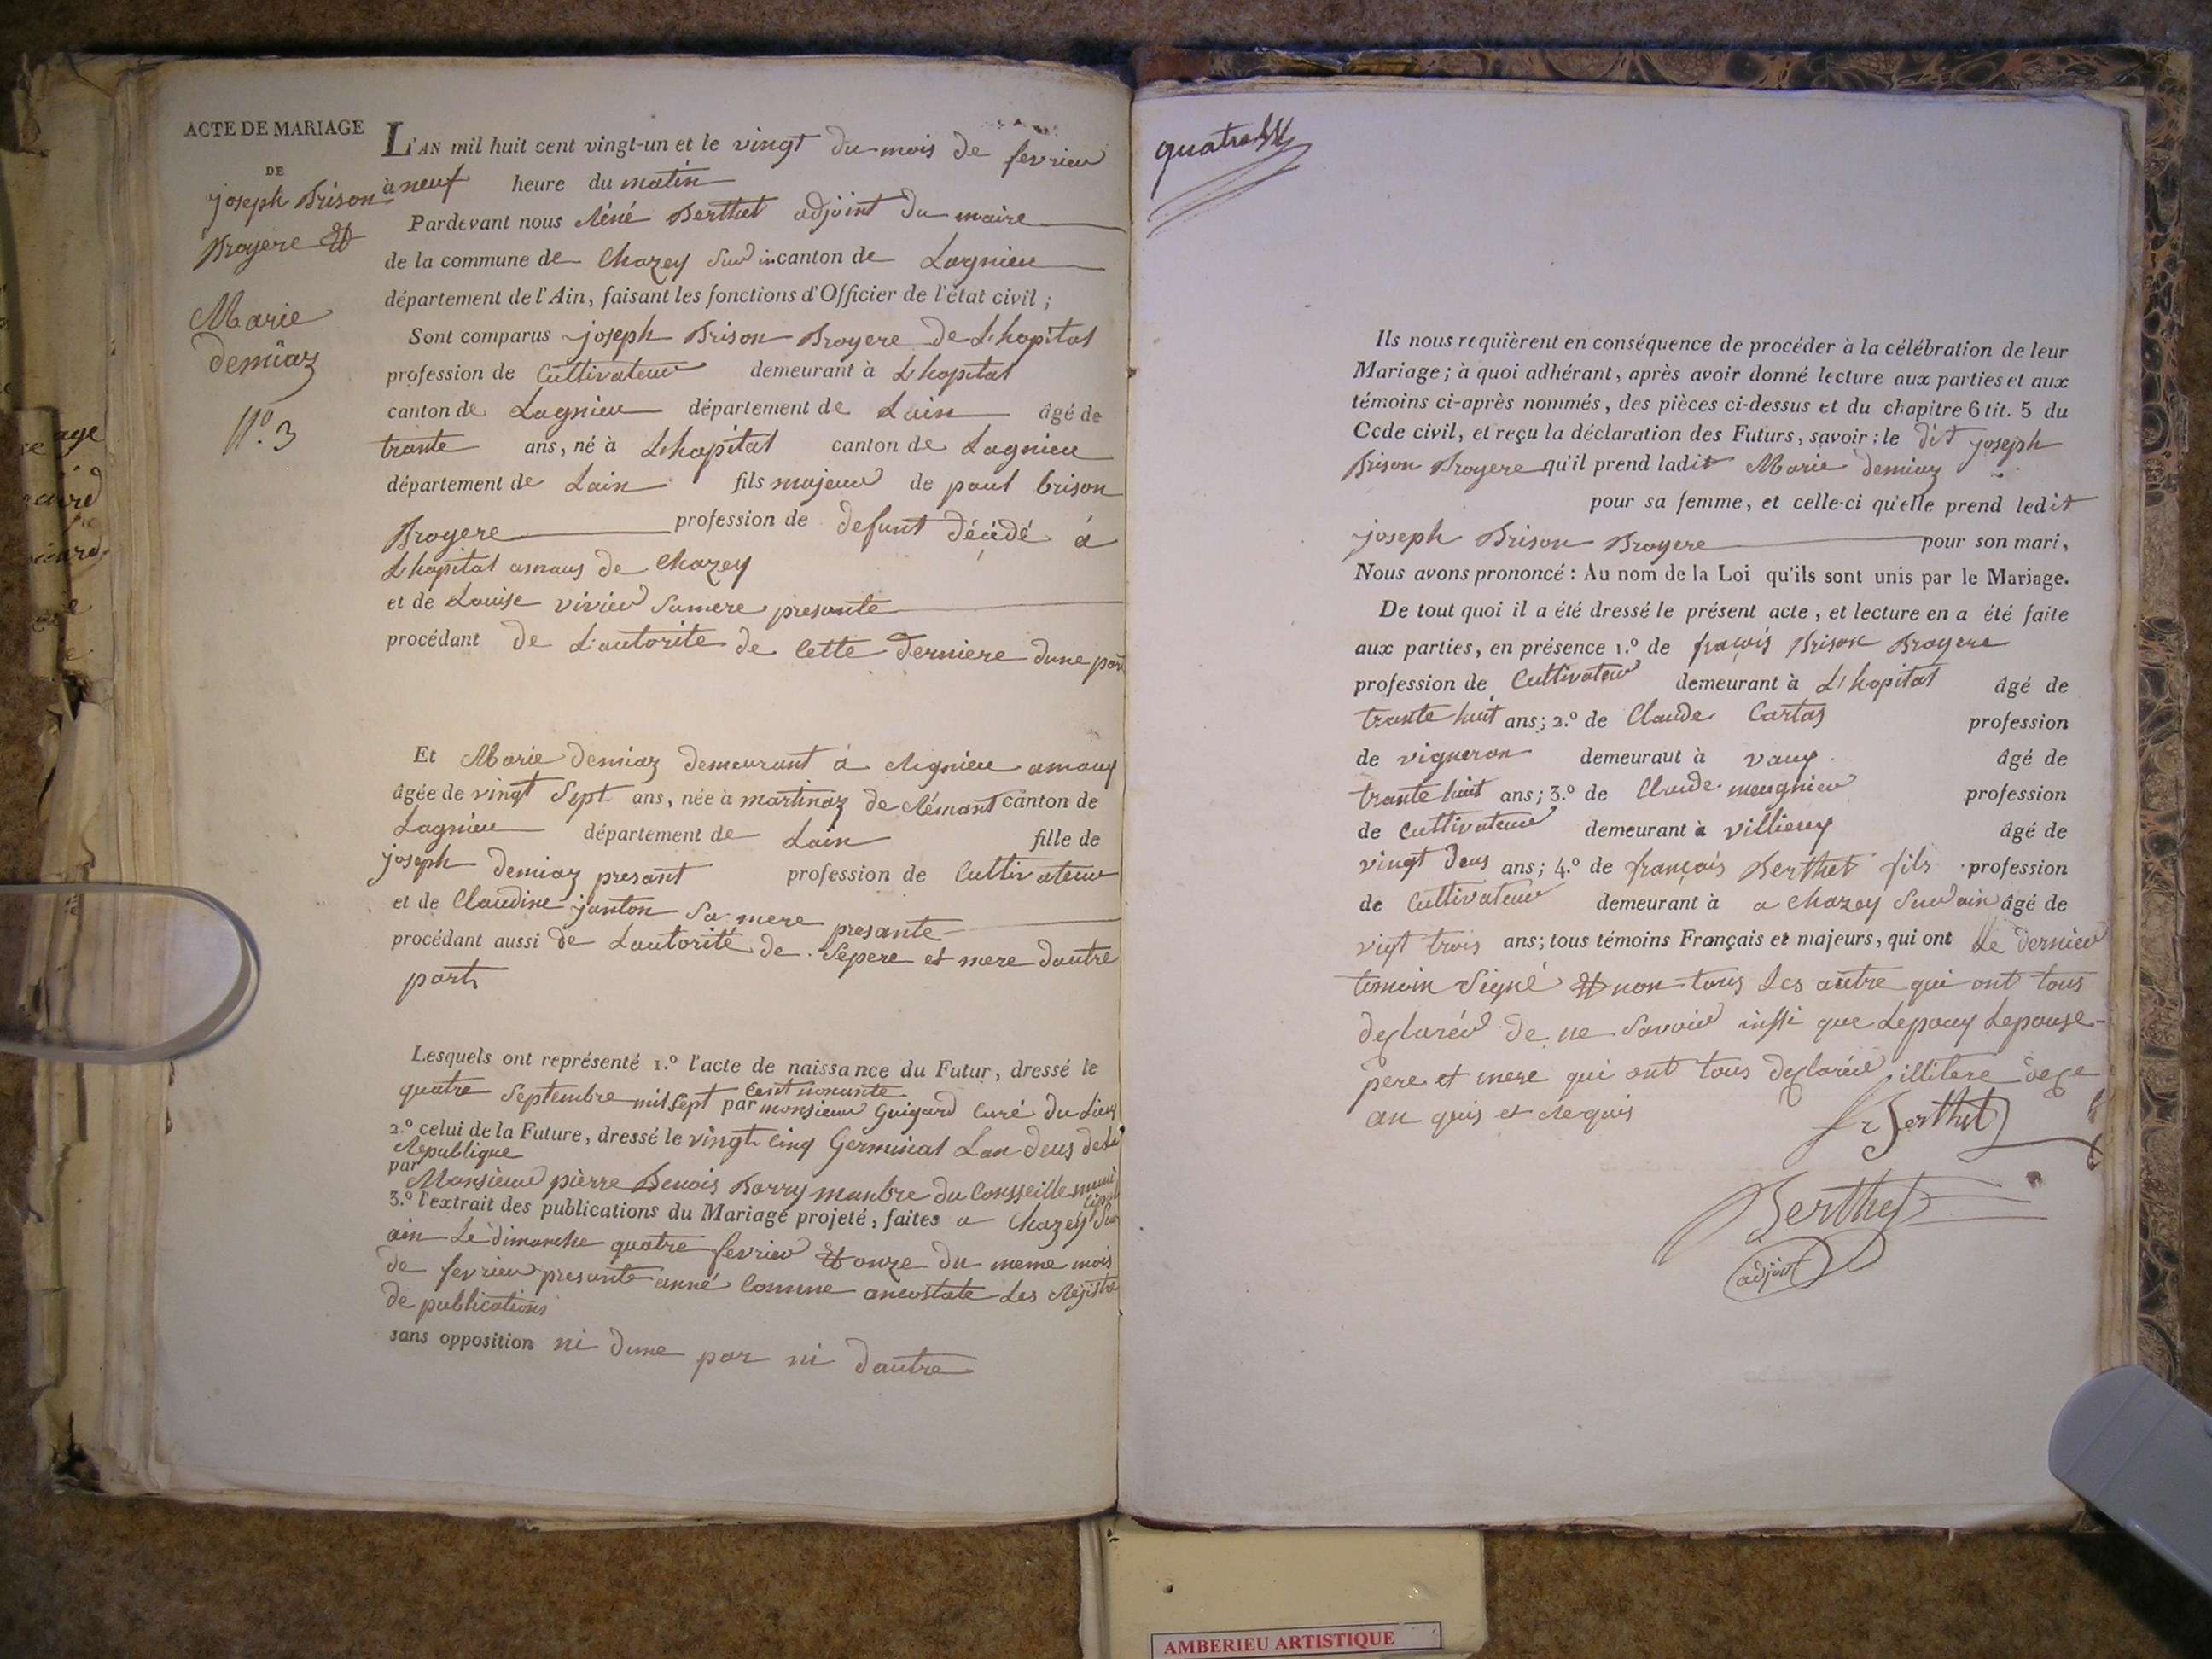 ACTE DE MARIAGE
DE
joseph Brison
Broyere et
Marie
demiaz
N.º 3
L'AN mil huit cent vingt-un et le vingt du mois de fevrier
à neuf heure du matin
Pardevant nous Réné Berthet adjoint du maire
de la commune de Chazey sur in canton de Lagnieu
département de l'Ain, faisant les fonctions d'Officier de l'état civil ;
Sont comparus joseph Brison Broyere de L'hopital
profession de Cultivateur demeurant à L'hopital
canton de Lagnieu département de Lain âgé de
trante ans, né à L'hopital canton de Lagnieu
département de Lain fils majeur de paul brison
Broyere profession de defunt décédé à
L'hopital amaus de Chazey
et de Louise vivier sa mere presante
procédant de L'autorite de cette derniere dune part
Et Marie demiaz demeurant à Rignieu amaux
âgée de vingt sept ans, née à martinaz de Rémant canton de
Lagnieu département de Lain fille de
joseph demiaz presant profession de Cultivateur
et de Claudine janton sa mere presante
procédant aussi de Lautorité de Sepere et mere dautre
part
Lesquels ont représenté 1.º l'acte de naissance du Futur, dressé le
quatre septembre mil sept cent nonante par monsieur Guigard Curé du Lieu
2.º celui de la Future, dressé le vingt cinq Germinal Lan deus de la
Republique
par Monsieur pièrre Benois Barry manbre du Consseille municipal
3.º l'extrait des publications du Mariage projeté, faites a Chazey sur
ain Le dimanche quatre fevrier et onze du meme mois
de fevrier presante anné Comme ancostate Les Régistre
de publications
sans opposition ni dune par ni dautre
quatre
Ils nous requièrent en conséquence de procéder à la célébration de leur
Mariage ; à quoi adhérant, après avoir donné lecture aux parties et aux
témoins ci-après nommés, des pièces ci-dessus et du chapitre 6 tit. 5 du
Code civil, et reçu la déclaration des Futurs, savoir : le dit joseph
Brison Broyere qu'il prend ladit Marie demiaz
pour sa femme, et celle-ci qu'elle prend ledit
joseph Brison Broyere pour son mari,
Nous avons prononcé : Au nom de la Loi qu'ils sont unis par le Mariage.
De tout quoi il a été dressé le présent acte, et lecture en a été faite
aux parties, en présence 1.º de fraçois Brison Broyere
profession de Cultivateur demeurant à L'hopital âgé de
trante huit ans ; 2.º de Claude Cartas profession
de vigneron demeurant à vaux âgé de
trante huit ans ; 3.º de Claude meugnier profession
de Cultivateur demeurant à villieux âgé de
vingt deus ans ; 4.º de françois Berthet fils profession
de Cultivateur demeurant à a Chazey Sur ain âgé de
vigt trois ans ; tous témoins Français et majeurs, qui ont Le dernier
temoin Signé et non tous Les autre qui ont tous
declarér de ne Savoir inssi que Lepoux Lepouse
pere et mere qui ont tous declarée illitere dece
an quis et Requis
fr Berthet
Berthet
adjoint
AMBERIEU ARTISTIQUE